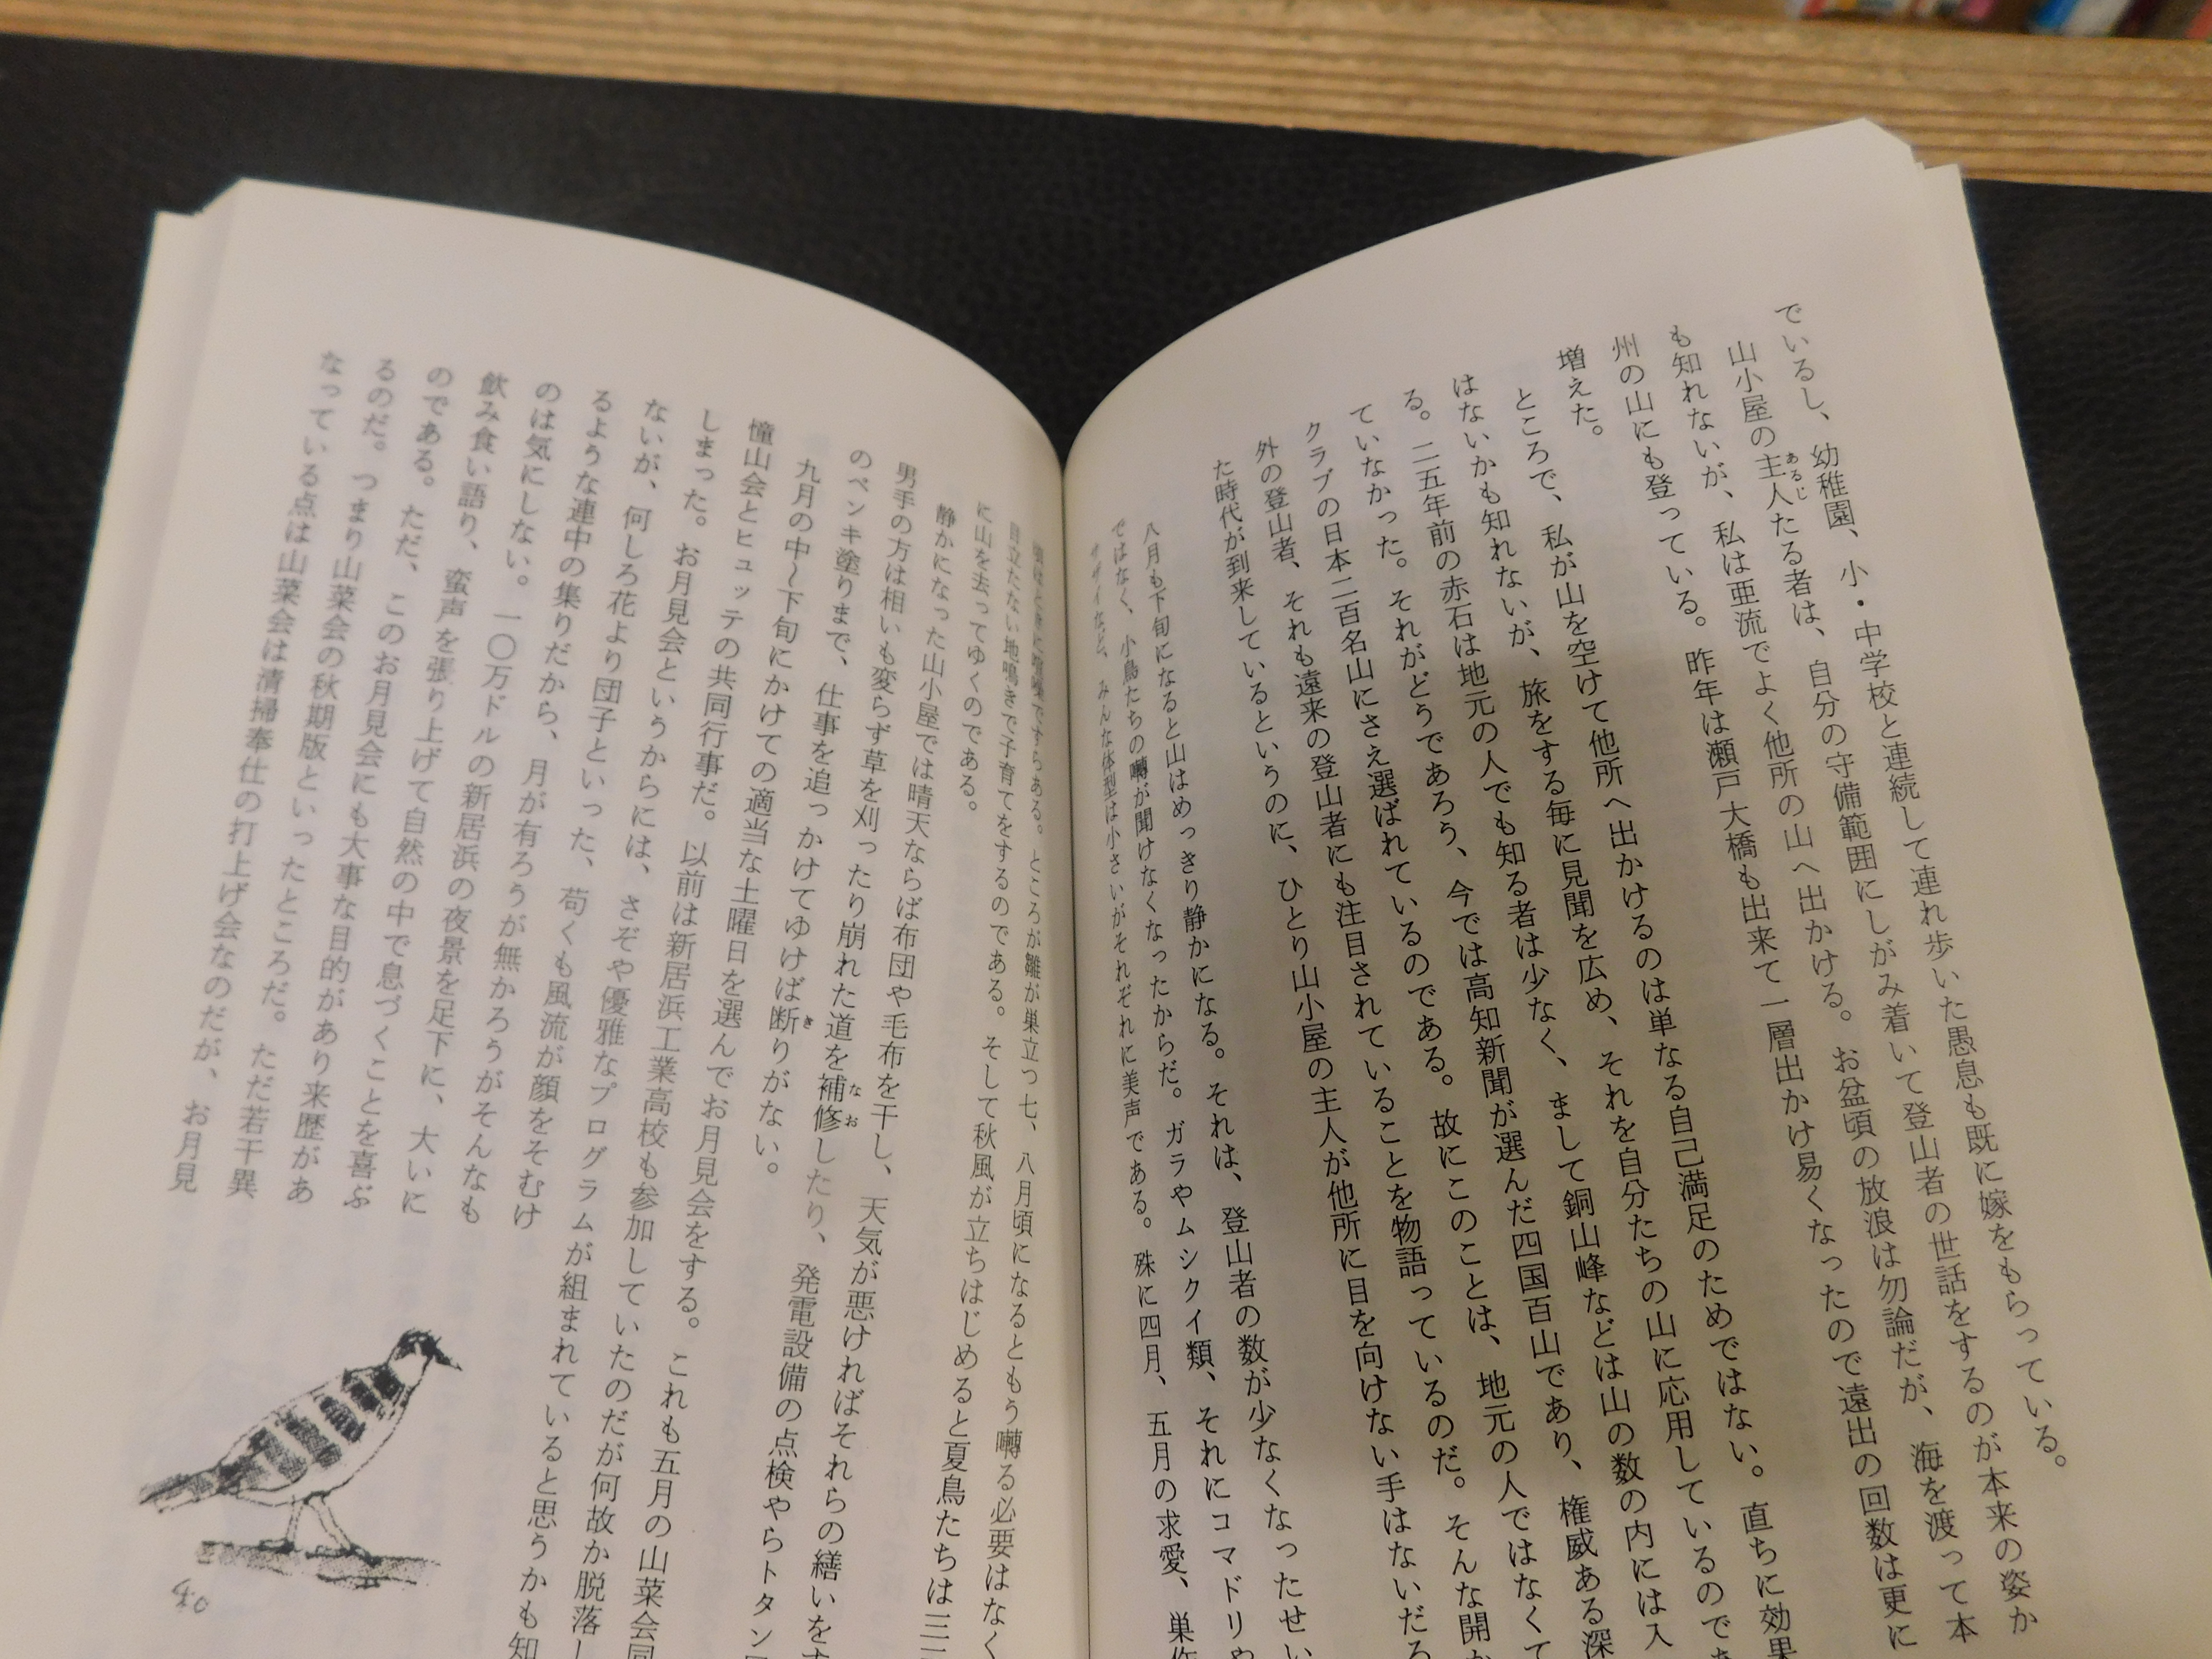 でいるし、幼稚園、小・中学校と連続して連れ歩いた愚息も既に嫁をもらっている。
山小屋の主人あるじたる者は、自分の守備範囲にしがみ着いて登山者の世話をするのが本来の姿か
も知れないが、私は亜流でよく他所の山へ出かける。お盆頃の放浪は勿論だが、海を渡って本
州の山にも登っている。昨年は瀬戸大橋も出来て一層出かけ易くなったので遠出の回数は更に
増えた。
ところで、私が山を空けて他所へ出かけるのは単なる自己満足のためではない。直ちに効果
はないかも知れないが、旅をする毎に見聞を広め、それを自分たちの山に応用しているのであ
る。二五年前の赤石は地元の人でも知る者は少なく、まして銅山峰などは山の数の内には入
ていなかった。それがどうであろう、今では高知新聞が選んだ四国百山であり、権威ある深
クラブの日本二百名山にさえ選ばれているのである。故にこのことは、地元の人ではなくて
外の登山者、それも遠来の登山者にも注目されていることを物語っているのだ。そんな開か
た時代が到来しているというのに、ひとり山小屋の主人が他所に目を向けない手はないだろ
八月も下旬になると山はめっきり静かになる。それは、登山者の数が少なくなったせい
ではなく、小鳥たちの囀が聞けなくなったからだ。ガラやムシクイ類、それにコマドリや
サザイなど、みんな体型は小さいがそれぞれに美声である。殊に四月、五月の求愛、巣作
頃はときに喧噪ですらある。ところが雛が巣立つ七、八月頃になるともう囀る必要はなく
目立たない地鳴きで子育てをするのである。そして秋風が立ちはじめると夏鳥たちは三三
に山を去ってゆくのである。
静かになった山小屋では晴天ならば布団や毛布を干し、天気が悪ければそれらの繕いをす
男手の方は相いも変らず草を刈ったり崩れた道を補修なおしたり、発電設備の点検やらトタン
のペンキ塗りまで、仕事を追っかけてゆけば断きりがない。
九月の中〜下旬にかけての適当な土曜日を選んでお月見会をする。これも五月の山菜会同
憧山会とヒュッテの共同行事だ。以前は新居浜工業高校も参加していたのだが何故か脱落し
しまった。お月見会というからには、さぞや優雅なプログラムが組まれていると思うかも知
ないが、何しろ花より団子といった、苟くも風流が顔をそむけ
るような連中の集りだから、月が有ろうが無かろうがそんなも
のは気にしない。一〇万ドルの新居浜の夜景を足下に、大いに
飲み食い語り、蛮声を張り上げて自然の中で息づくことを喜ぶ
のである。ただ、このお月見会にも大事な目的があり来歴があ
るのだ。つまり山菜会の秋期版といったところだ。ただ若干異
なっている点は山菜会は清掃奉仕の打上げ会なのだが、お月見